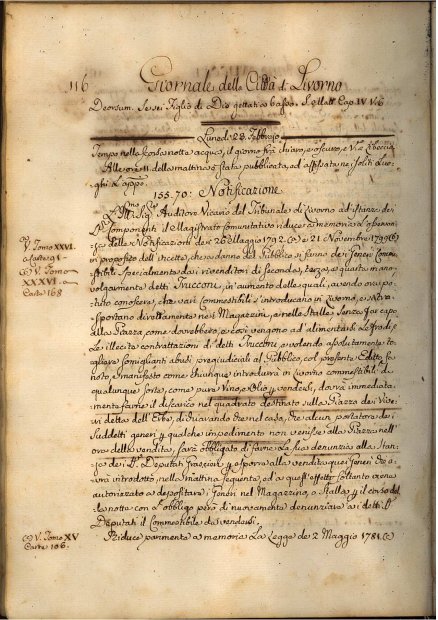 116
Giornale della Città di Livorno
Deorsum. Se sei Figlio di Dio gettati a basso. S. Matt. Cap. IV V. 6
Lunedì 28. Febbrajo
Tempo nella scorsa notte acqua, il giorno frà chiaro, e oscuro, e V.
Alle ore 11. della mattina è stata pubblicata, ed affissata nei soliti Luo-
ghi L'appo.
155. 70: Notificazione
Auditore Vicario del Tribunale di Livorno ad istanza dei
Componenti il Magistrato Comunitativo riduce a memoria l'osserva-
delle Notificazioni de' 26 Maggio 1792. (a) e 21 Novembre 1799 (b)
V. Tomo XXVI.
a Carte 91
in proposito dell'incetta, che a danno del Pubblico si fanno dei Generi Comme-
(b) V. Tomo
XXXVI a
Carte 168
stibili specialmente da i rivenditori di seconda, terza, e quarta mano
volgarmente detti Trucconi, in aumento delle quali, avendo ora po-
tuto conoscere, che varj Commestibili s'introducano in Livorno, e si tra-
sportano direttamente nei Magazzini, ai nelle Stalle senza far capo
alla Piazza, come dovrebbero, e così vengono ad alimentarsi Le frodi, e
Le illecite contrattazioni di detti Trucconi, e volendo assolutamente to-
gliere somiglianti abusi pregiudiciali al Pubblico, col presente Editto fa
noto, e manifesto come chiunque introdurrà in Livorno commestibili di
qualunque sorta, come pure Vino, e Olio per vendersi, dovrà immediata-
mente farne il discarico nel quadrato destinato sulla Piazza dei Vive-
ri detta dell'Erbe, dichiarando che nel caso, che alcun portatore dei
suddetti generi per qualche impedimento non venisse alla Piazza nell'
ore della vendita, sarà obbligato di farne la sua denunzia alla Stan-
za dei SS. Deputati Grascieri per esporre alla vendita quei Generi che a-
vrà introdotto, nella mattina seguente, ed a quest'effetto soltanto viene
autorizzato a depositare i Generi nel Magazzino, o Stalla per il corso del-
la notte con L'obbligo però di nuovamente denunziare ai detti SS.
Deputati il Commestibile da vendersi.
(c) V. Tomo XV
Carte 106.
Riduce parimente a memoria La Legge de' 2 Maggio 1781. (c)